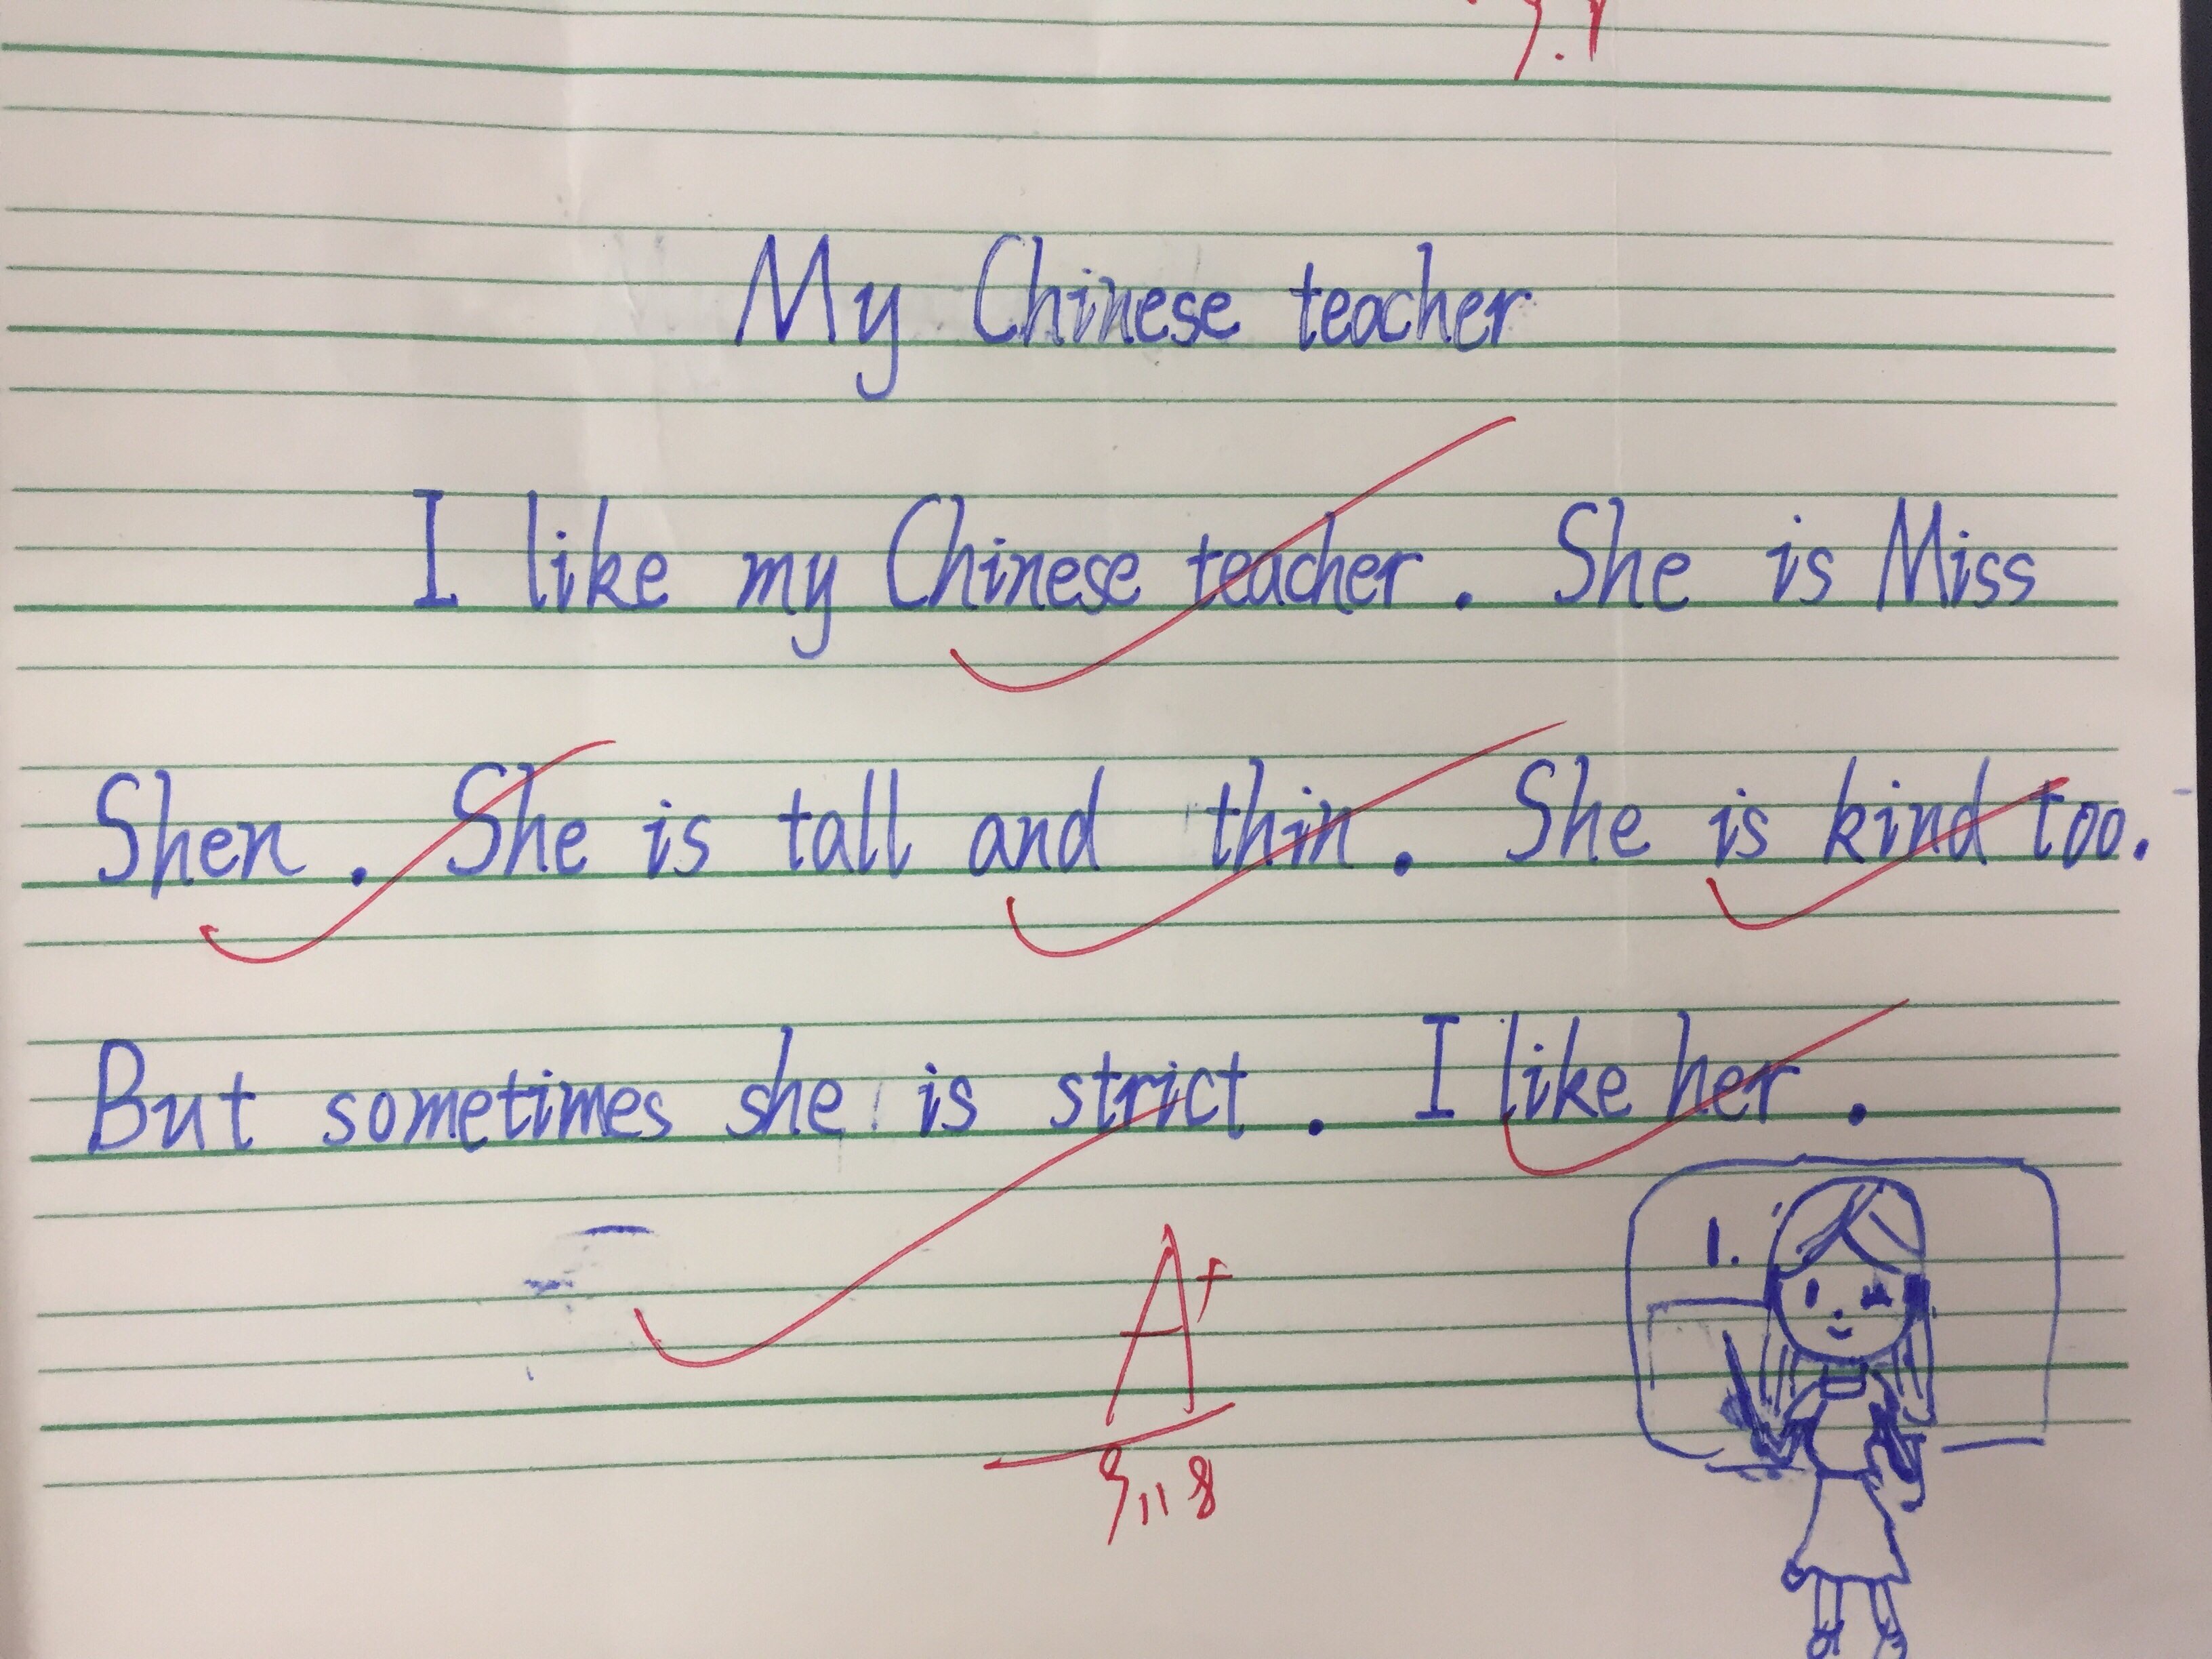 My Chinese teacher
I like my Chinese teacher. She is Miss
Shen. She is tall and thin. She is kind too.
But sometimes she is strict. I like her.
1.
A+
9.18